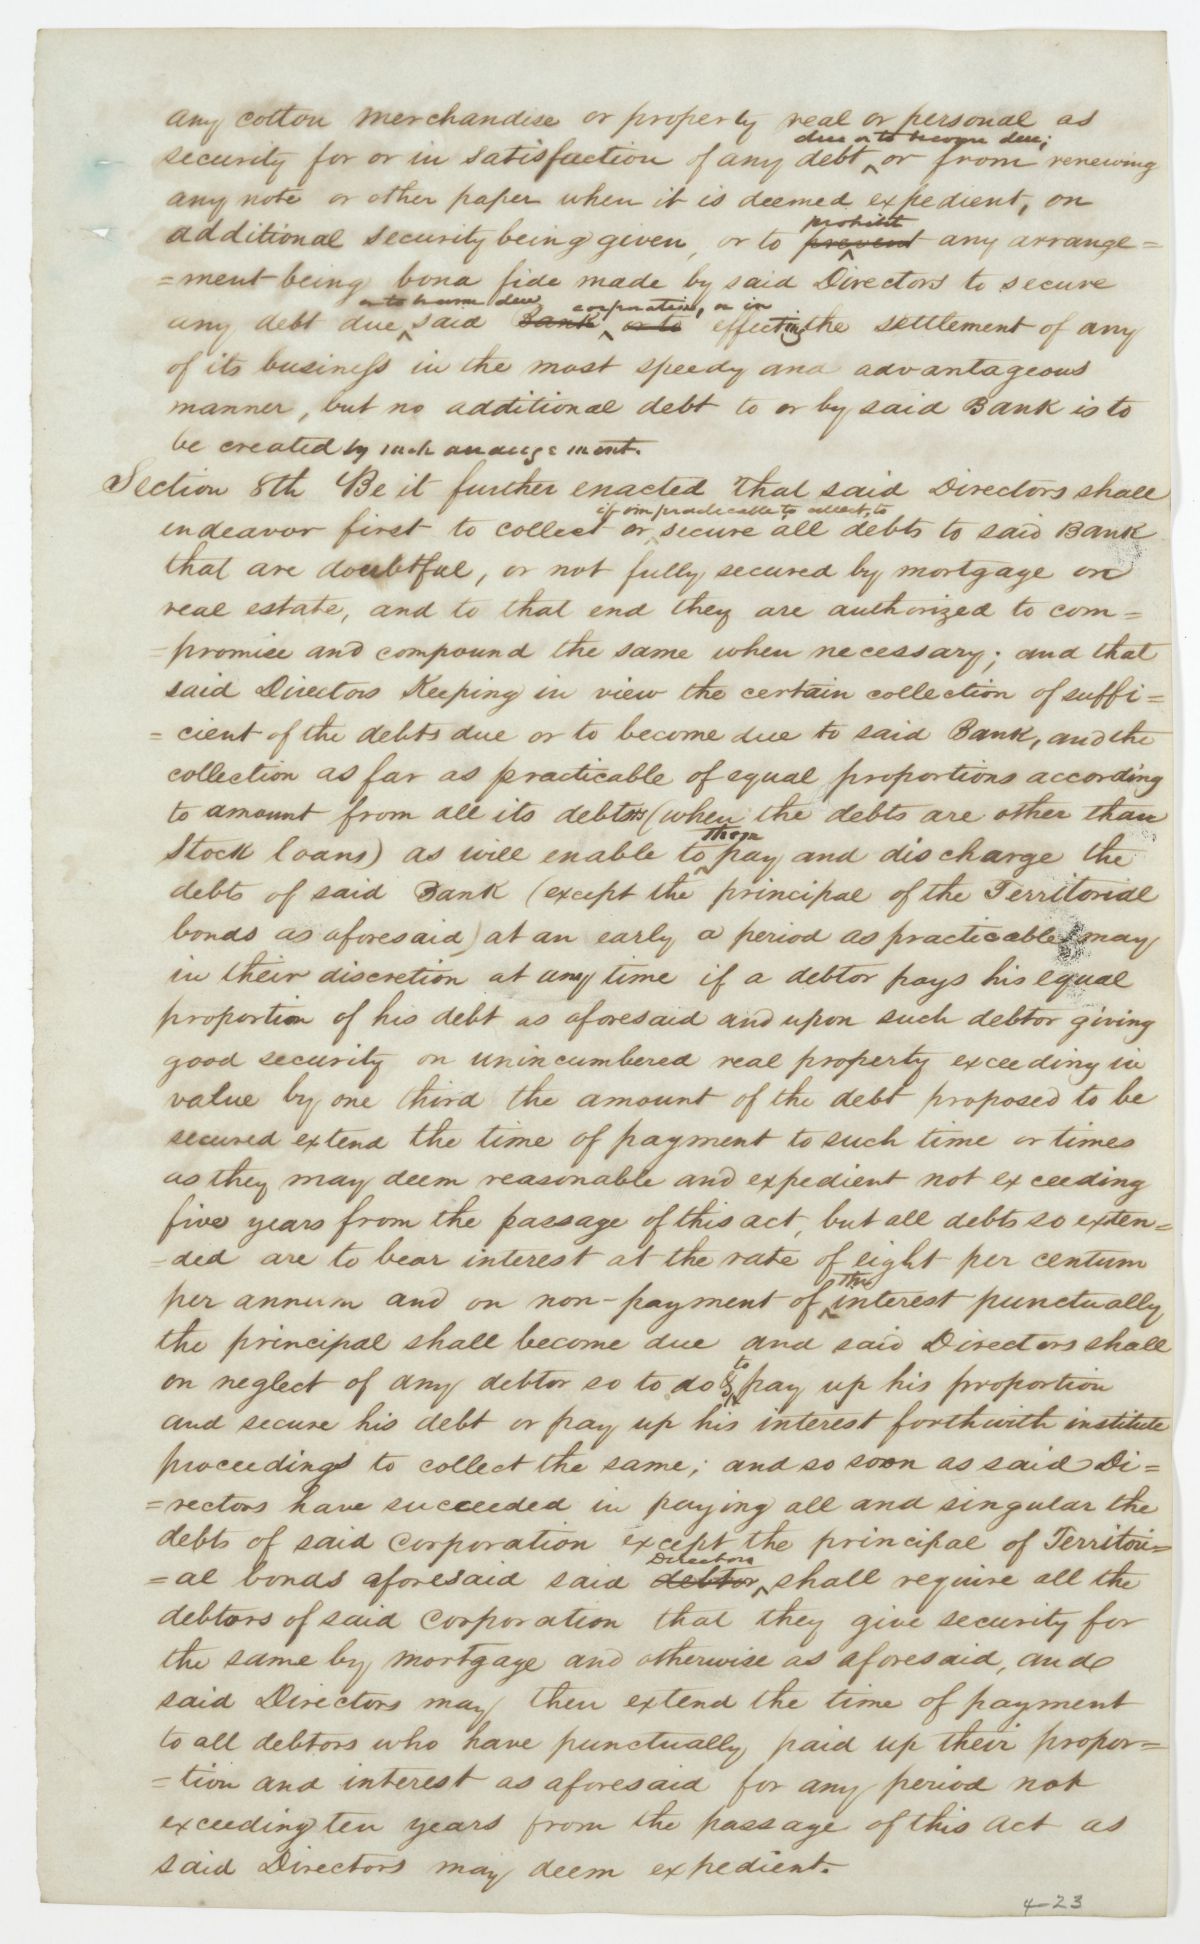 any cotton merchandise or property real or personal as
due or to become due;
security for or in satisfaction of any debt ‸ or from renewing
any note or other paper when it is deemed expedient, on
prohibit
additional security being given, or to prevent ‸ any arrange=
=ment being bona fide made by said Directors to secure
or to become due corporation, or in
any debt due ‸ said Bank ‸ or to effecting the settlement of any
of its business in the most speedy and advantageous
manner, but no additional debt to or by said Bank is to
be created by such arrangement.
Section 8th Be it further enacted That said Directors shall
if impracticable to collect, to
endeavor first to collect or ‸ secure all debts to said Bank
that are doubtful, or not fully secured by mortgage on
real estate, and to that end they are authorized to com=
=promise and compound the same when necessary; and that
said Directors Keeping in view the certain collection of suffi=
=cient of the debts due or to become due to said Bank, and the
collection as far as practicable of equal proportions according
to amount from all its debtors (when the debts are other than
them
Stock loans) as will enable ‸ to pay and discharge the
debts of said Bank (except the principal of the Territorial
bonds as aforesaid) at an early a period as practicable may
in their discretion at any time if a debtor pays his equal
proportion of his debt as aforesaid and upon such debtor giving
good security on unincumbered real property exceeding in
value by one third the amount of the debt proposed to be
secured extend the time of payment to such time or times
as they may deem reasonable and expedient not exceeding
five years from the passage of this act, but all debts so exten=
=ded are to bear interest at the rate of eight per centum
the
per annum and on non-payment of ‸ interest punctually
the principal shall become due and said Directors shall
to
on neglect of any debtor so to do & ‸ pay up his proportion
and secure his debt or pay up his interest forthwith institute
proceedings to collect the same; and so soon as said Di=
=rectors have succeeded in paying all and singular the
debts of said corporation except the principal of Territori=
Directors
=al bonds aforesaid said debtor ‸ shall require all the
debtors of said corporation that they give security for
the same by mortgage and otherwise as aforesaid, and
said Directors may then extend the time of payment
to all debtors who have punctually paid up their propor=
=tion and interest as aforesaid for any period not
exceeding ten years from the passage of this act as
said Directors may deem expedient.
4-23